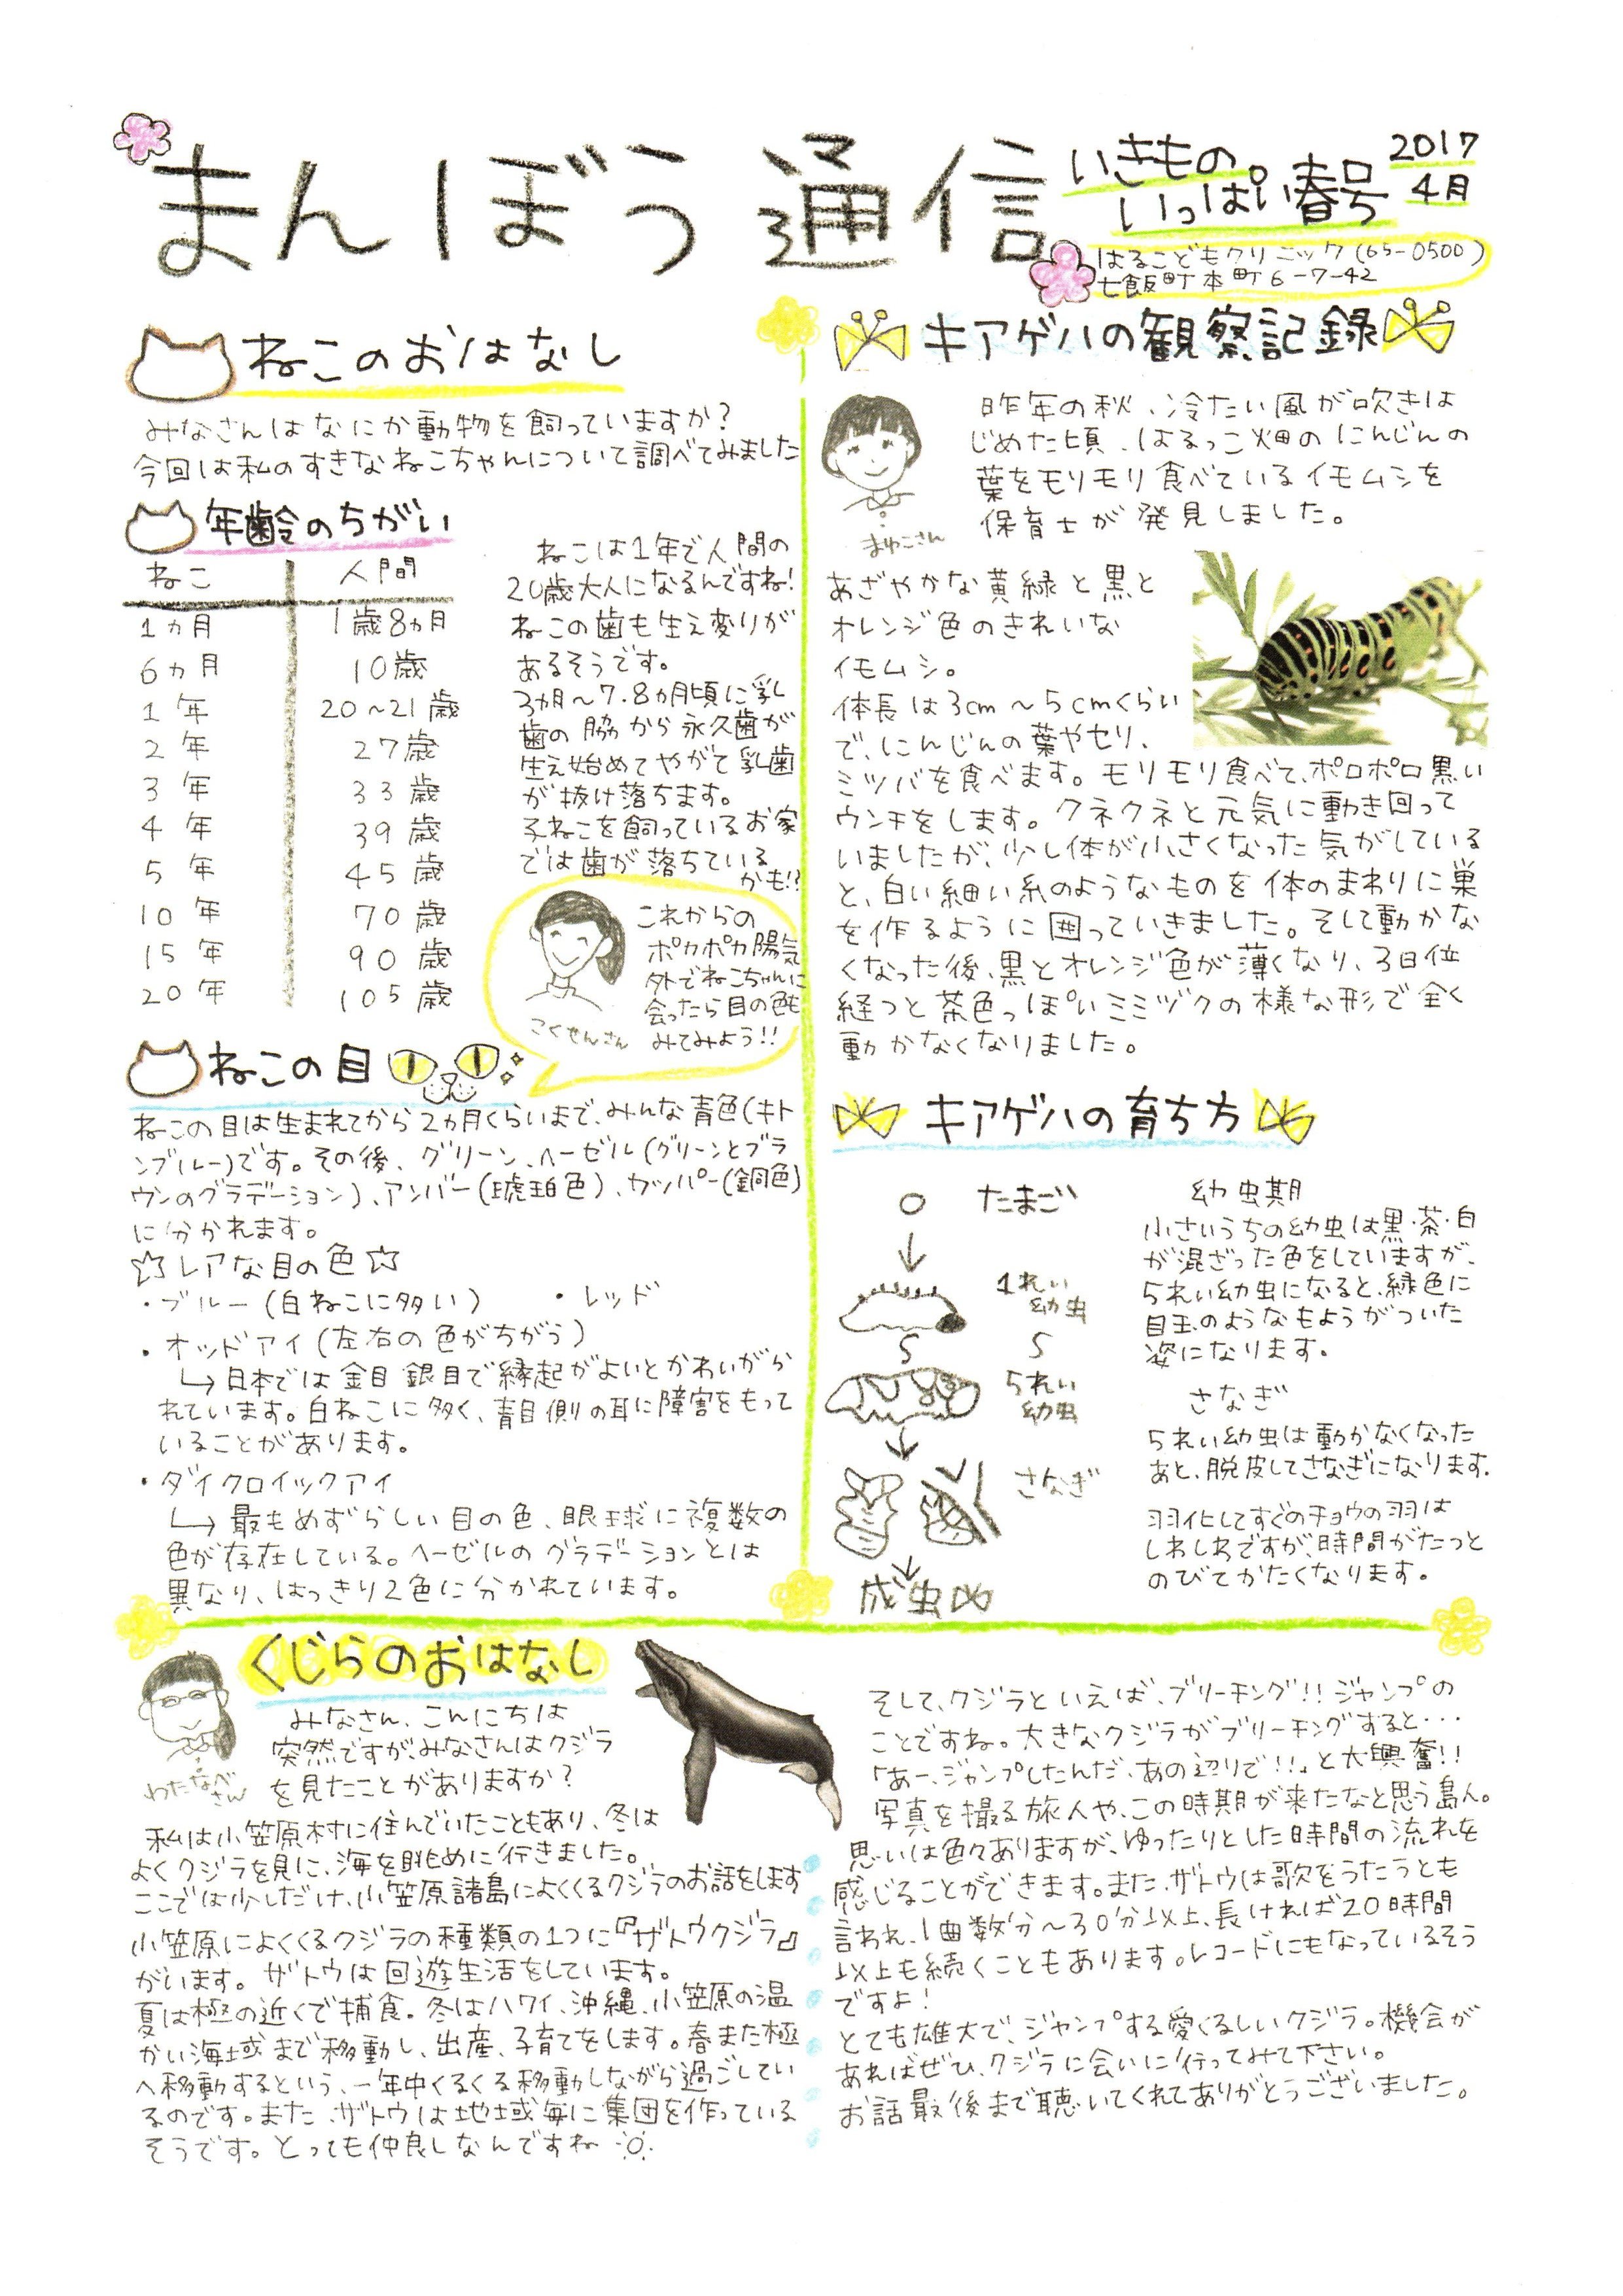 まんぼう通信
いきもの
いっぱい春号
2017
4月
はるこどもクリニック(65-0500)
七飯町本町6-7-42
ねこのおはなし
みなさんはなにか動物を飼っていますか?
今回は私のすきなねこちゃんについて調べてみました
年齢のちがい
ねこ 人間
1ヵ月 1歳8ヵ月
6ヵ月 10歳
1年 20~21歳
2年 27歳
3年 33歳
4年 39歳
5年 45歳
10年 70歳
15年 90歳
20年 105歳
ねこは1年で人間の
20歳大人になるんですね!
ねこの歯も生え変りが
あるそうです。
3ヵ月~7.8ヵ月頃に乳
歯の脇から永久歯が
生え始めてやがて乳歯
が抜け落ちます。
子ねこを飼っているお家
では歯が落ちている
かも!?
これからの
ポカポカ陽気
外でねこちゃんに
会ったら目の色も
みてみよう!!
こくせんさん
ねこの目
ねこの目は生まれてから2ヵ月くらいまで、みんな青色(キト
ンブルー)です。その後、グリーン、ヘーゼル(グリーンとブラ
ウンのグラデーション)、アンバー(琥珀色)、カッパー(銅色)
に分かれます。
☆レアな目の色☆
・ブルー(白ねこに多い) ・レッド
・オッドアイ(左右の色がちがう)
↳日本では金目銀目で縁起がよいとかわいがら
れています。白ねこに多く、青目側の耳に障害をもって
いることがあります。
・ダイクロイックアイ
↳最もめずらしい目の色、眼球に複数の
色が存在している。ヘーゼルのグラデーションとは
異なり、はっきり2色に分かれています。
キアゲハの観察記録
まゆこさん
昨年の秋、冷たい風が吹きは
じめた頃、はるっこ畑のにんじんの
葉をモリモリ食べているイモムシを
保育士が発見しました。
あざやかな黄緑と黒と
オレンジ色のきれいな
イモムシ。
体長は3cm~5cmくらい
で、にんじんの葉やセリ、
ミツバを食べます。モリモリ食べて、ポロポロ黒い
ウンチをします。クネクネと元気に動き回って
いましたが、少し体が小さくなった気がしている
と、白い細い糸のようなものを体のまわりに巣
を作るように囲っていきました。そして動かな
くなった後、黒とオレンジ色が薄くなり、3日位
経つと茶色っぽいミミヅクの様な形で全く
動かなくなりました。
キアゲハの育ち方
たまご
1れい
幼虫
5れい
幼虫
さなぎ
成虫
幼虫期
小さいうちの幼虫は黒・茶・白
が混ざった色をしていますが、
5れい幼虫になると、緑色に
目玉のようなもようがついた
姿になります。
さなぎ
5れい幼虫は動かなくなった
あと、脱皮してさなぎになります。
羽化してすぐのチョウの羽は
しわしわですが、時間がたつと
のびてかたくなります。
くじらのおはなし
わたなべ
さん
みなさん、こんにちは
突然ですが、みなさんはクジラ
を見たことがありますか?
私は小笠原村に住んでいたこともあり、冬は
よくクジラを見に、海を眺めに行きました。
ここでは少しだけ、小笠原諸島によくくるクジラのお話をします
小笠原によくくるクジラの種類の1つに『ザトウクジラ』
がいます。ザトウは回遊生活をしています。
夏は極の近くで捕食。冬はハワイ、沖縄、小笠原の温
かい海域まで移動し、出産、子育てをします。春また極
へ移動するという、一年中くるくる移動しながら過ごしてい
るのです。また、ザトウは地域毎に集団を作っている
そうです。とっても仲良しなんですね
そして、クジラといえば、ブリーチング!!ジャンプの
ことですね。大きなクジラがブリーチングすると・・・
「あー、ジャンプしたんだ、あの辺りで!!」と大興奮!!
写真を撮る旅人や、この時期が来たなと思う島人。
思いは色々ありますが、ゆったりとした時間の流れを
感じることができます。また、ザトウは歌をうたうとも
言われ、1曲数分~30分以上、長ければ20時間
以上も続くこともあります。レコードにもなっているそう
ですよ!
とても雄大で、ジャンプする愛くるしいクジラ。機会が
あればぜひ、クジラに会いに行ってみて下さい。
お話最後まで聴いてくれてありがとうございました。